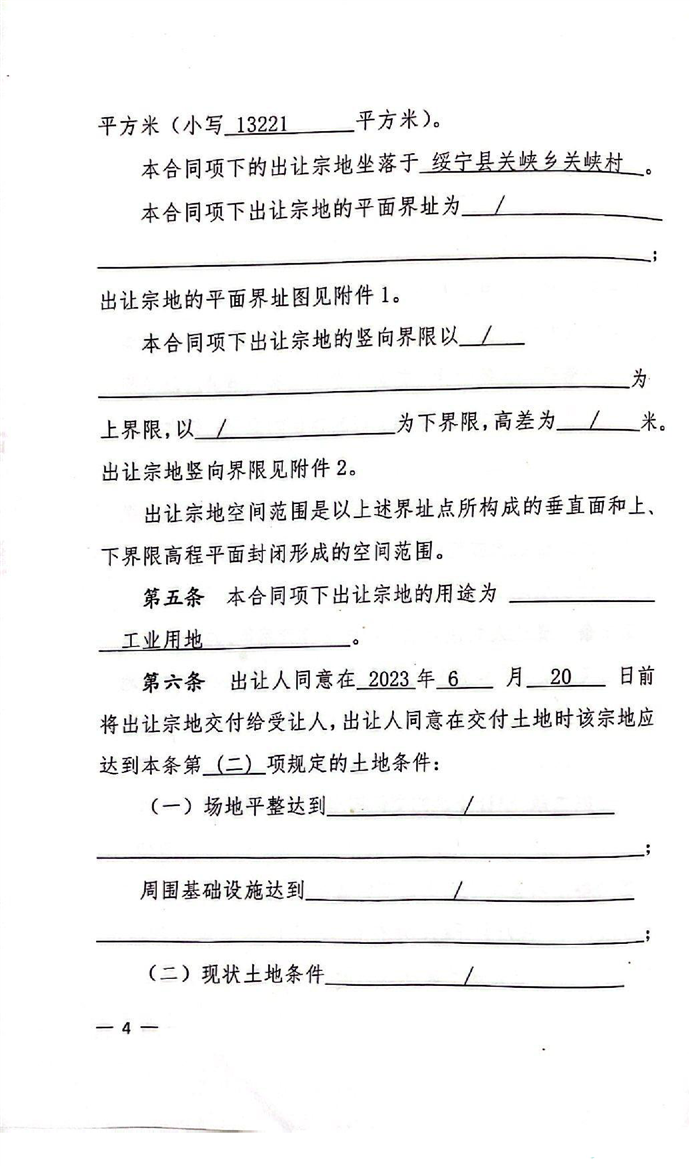 平方米（小写 13221 平方米）。
本合同项下的出让宗地坐落于 绥宁县关峡乡关峡村 。
本合同项下出让宗地的平面界址为 /
；
出让宗地的平面界址图见附件1。
本合同项下出让宗地的竖向界限以 /
为
上界限，以 / 为下界限，高差为 / 米。
出让宗地竖向界限见附件2。
出让宗地空间范围是以上述界址点所构成的垂直面和上、
下界限高程平面封闭形成的空间范围。
第五条 本合同项下出让宗地的用途为
工业用地 。
第六条 出让人同意在 2023 年 6 月 20 日前
将出让宗地交付给受让人，出让人同意在交付土地时该宗地应
达到本条第 (二) 项规定的土地条件：
（一）场地平整达到 /
；
周围基础设施达到 /
；
（二）现状土地条件 /
— 4 —